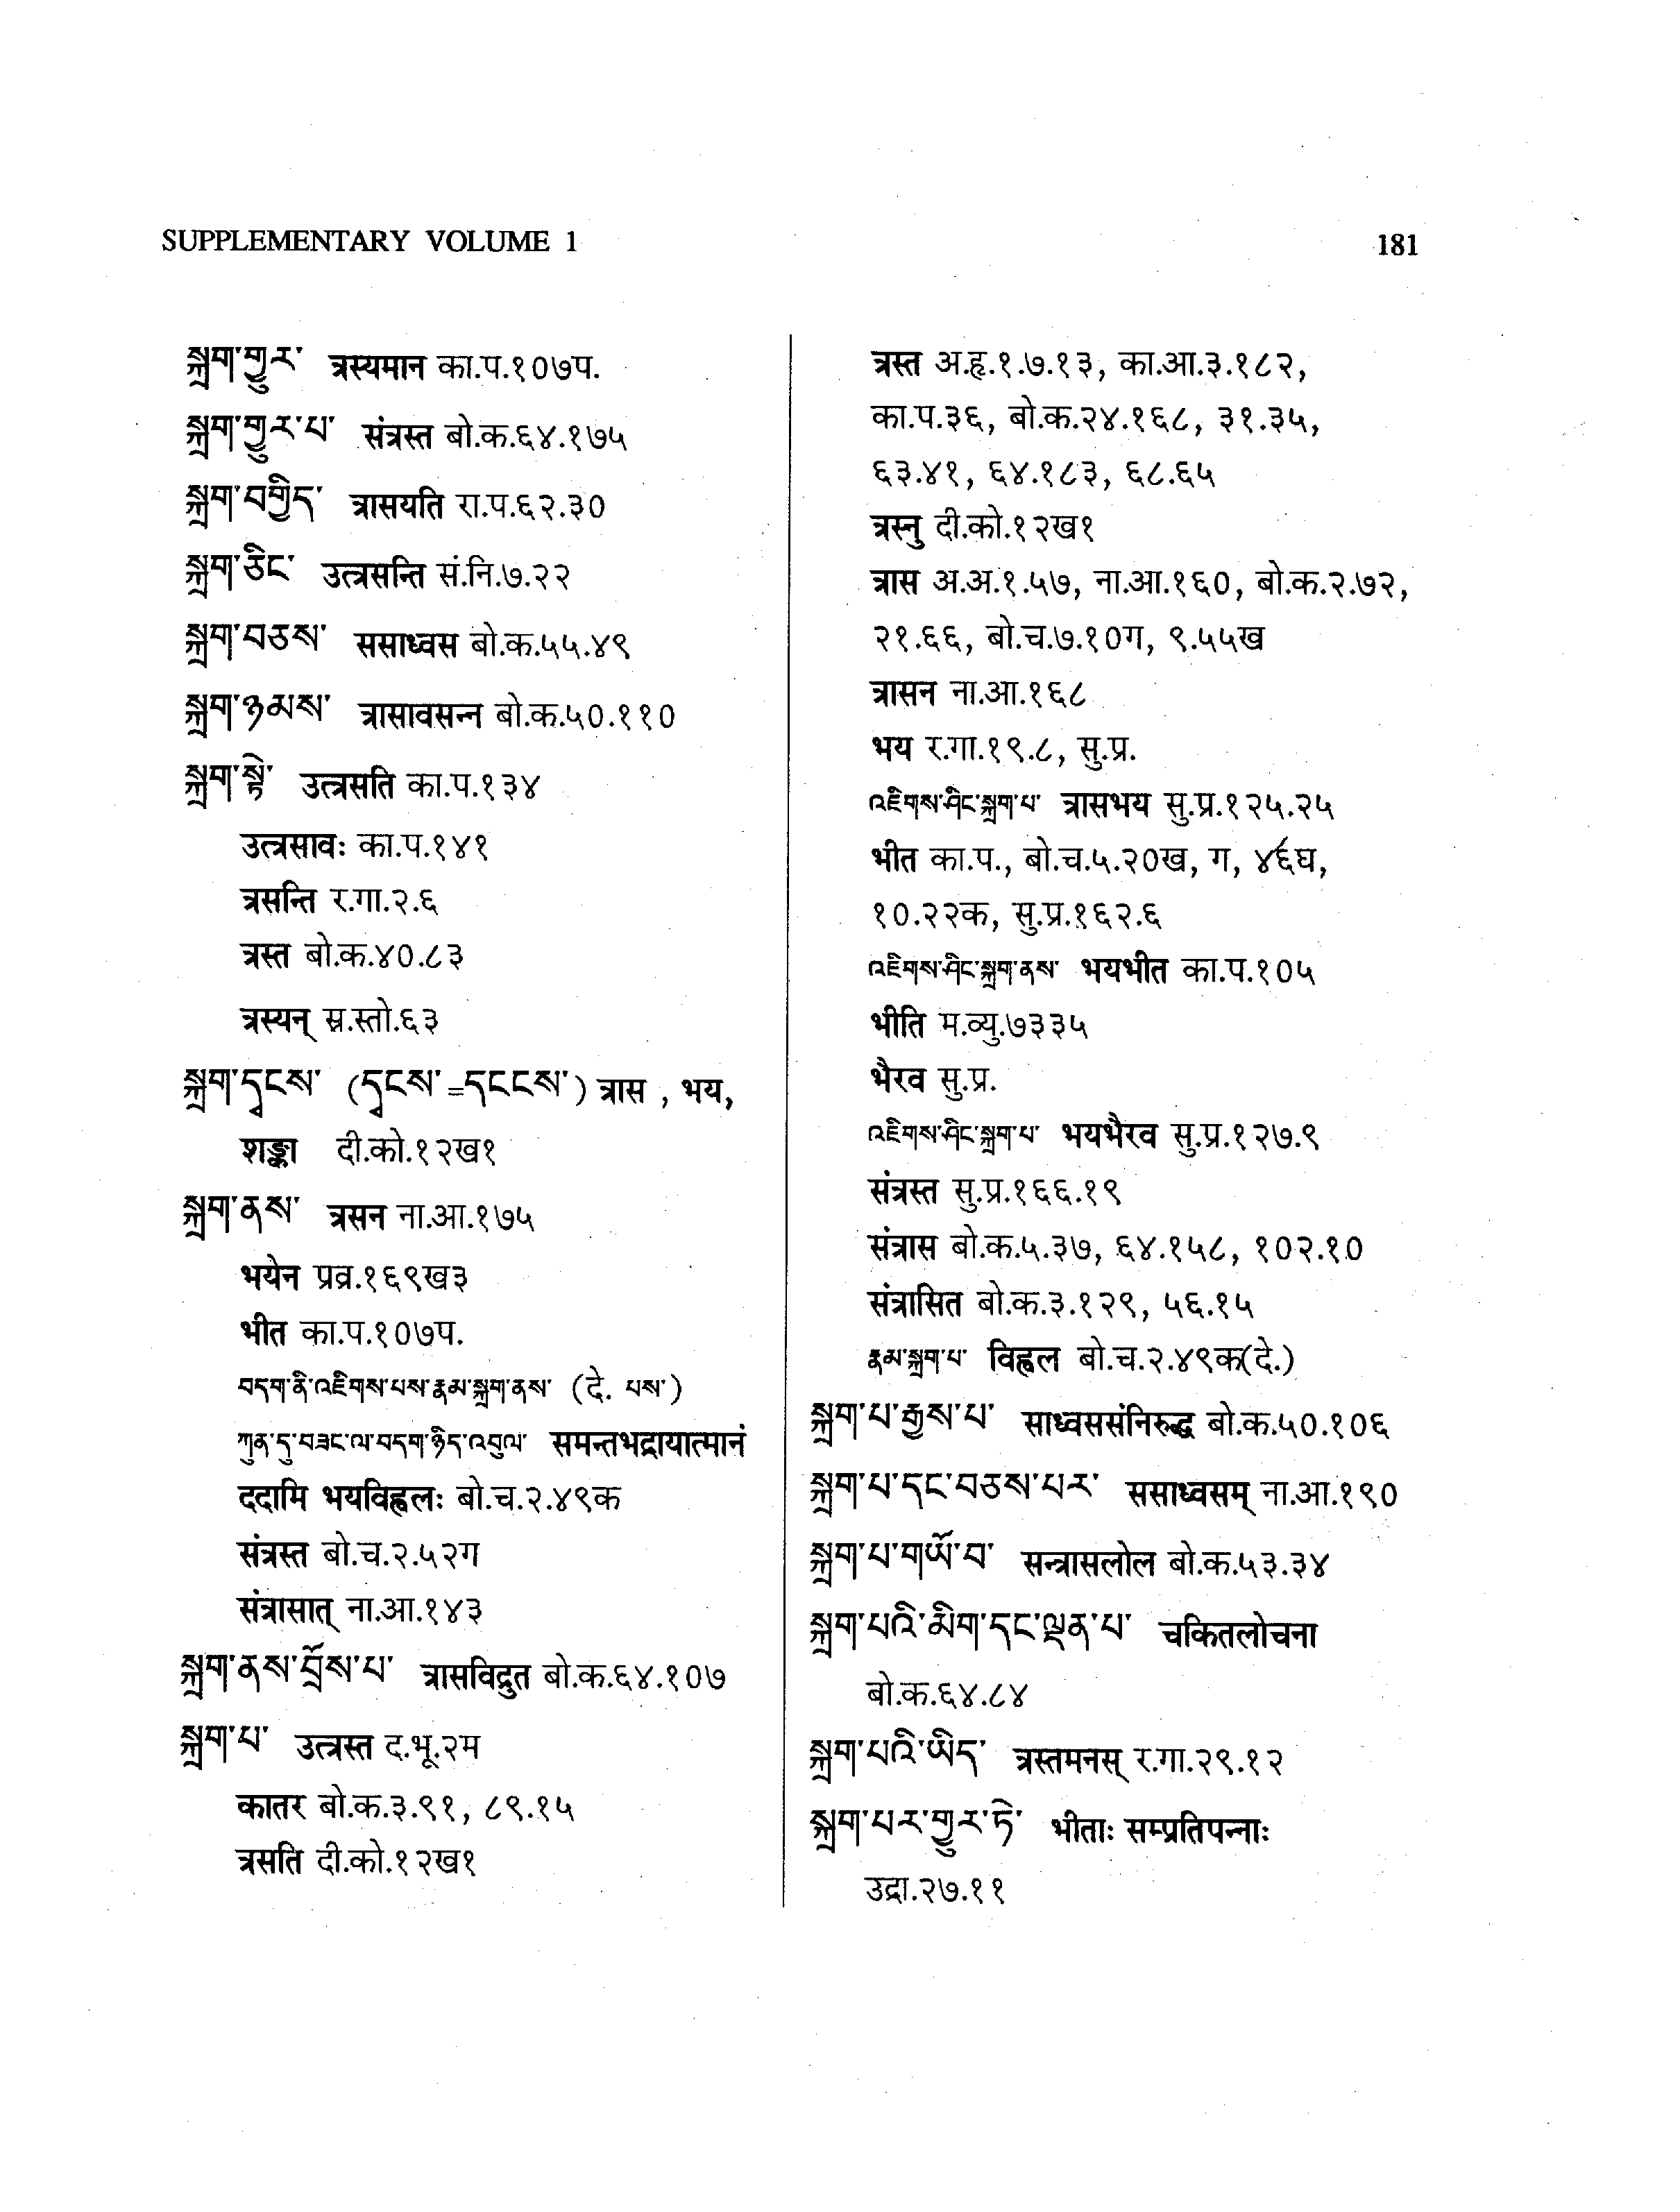 SUPPLEMENTARY VOLUME 1
181
སྐྲག་གྱུར་ त्रस्यमान का.प.१०७प.
སྐྲག་གྱུར་པ་ संत्रस्त बो.क.६४.१७५
སྐྲག་བགྱིད་ त्रासयति रा.प.६२.३०
སྐྲག་ཅིང་ उत्त्रसन्ति सं.नि.७.२२
སྐྲག་བཅས་ ससाध्वस बो.क.५५.४९
སྐྲག་ཉམས་ त्रासावसन्न बो.क.५०.११०
སྐྲག་སྟེ་ उत्त्रसति का.प.१३४
उत्त्रसावः का.प.१४१
त्रसन्ति र.गा.२.६
त्रस्त बो.क.४०.८३
त्रस्यन् स्र.स्तो.६३
སྐྲག་དྭངས་ (དྭངས་=དངངས་) त्रास , भय,
शङ्का दी.को.१२ख१
སྐྲག་ནས་ त्रसन ना.आ.१७५
भयेन प्रव्र.१६९ख३
भीत का.प.१०७प.
བདག་ནི་འཇིགས་པས་རྣམ་སྐྲག་ནས་ (दे. པས་)
ཀུན་ཏུ་བཟང་ལ་བདག་ཉིད་འབུལ་ समन्तभद्रायात्मानं
ददामि भयविह्वलः बो.च.२.४९क
संत्रस्त बो.च.२.५२ग
संत्रासात् ना.आ.१४३
སྐྲག་ནས་བྲོས་པ་ त्रासविद्रुत बो.क.६४.१०७
སྐྲག་པ་ उत्त्रस्त द.भू.२म
कातर बो.क.३.९१, ८९.१५
त्रसति दी.को.१२ख१
त्रस्त अ.हृ.१.७.१३, का.आ.३.१८२,
का.प.३६, बो.क.२४.१६८, ३१.३५,
६३.४१, ६४.१८३, ६८.६५
त्रस्नु दी.को.१२ख१
त्रास अ.अ.१.५७, ना.आ.१६०, बो.क.२.७२,
२१.६६, बो.च.७.१०ग, ९.५५ख
त्रासन ना.आ.१६८
भय र.गा.१९.८, सु.प्र.
འཇིགས་ཤིང་སྐྲག་པ་ त्रासभय सु.प्र.१२५.२५
भीत का.प., बो.च.५.२०ख, ग, घ,
१०.२२क, सु.प्र.१६२.६
འཇིགས་ཤིང་སྐྲག་ནས་ भयभीत का.प.१०५
भीति म.व्यु.७३३५
भैरव सु.प्र.
འཇིགས་ཤིང་སྐྲག་པ་ भयभैरव सु.प्र.१२७.९
संत्रस्त सु.प्र.१६६.१९
संत्रास बो.क.५.३७, ६४.१५८, १०२.१०
संत्रासित बो.क.३.१२९, ५६.१५
རྣམ་སྐྲག་པ་ विह्वल बो.च.२.४९क(दे.)
སྐྲག་པ་རྒྱས་པ་ साध्वससंनिरुद्ध बो.क.५०.१०६
སྐྲག་པ་དང་བཅས་པར་ ससाध्वसम् ना.आ.१९०
སྐྲག་པ་གཡོ་བ་ सन्त्रासलोल बो.क.५३.३४
སྐྲག་པའི་མིག་དང་ལྡན་པ་ चकितलोचना
बो.क.६४.८४
སྐྲག་པའི་ཡིད་ त्रस्तमनस् र.गा.२९.१२
སྐྲག་པར་གྱུར་ཏེ་ भीताः सम्प्रतिपन्नाः
उद्रा.२७.११